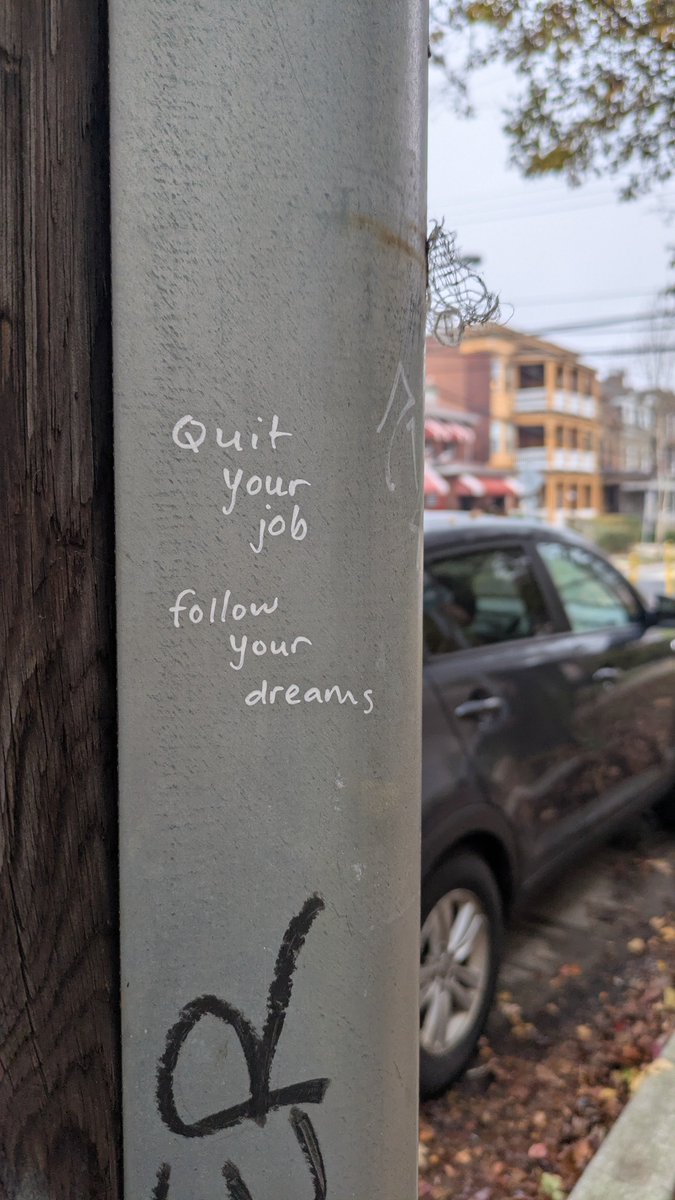 Quit
your
job
follow
your
dreams